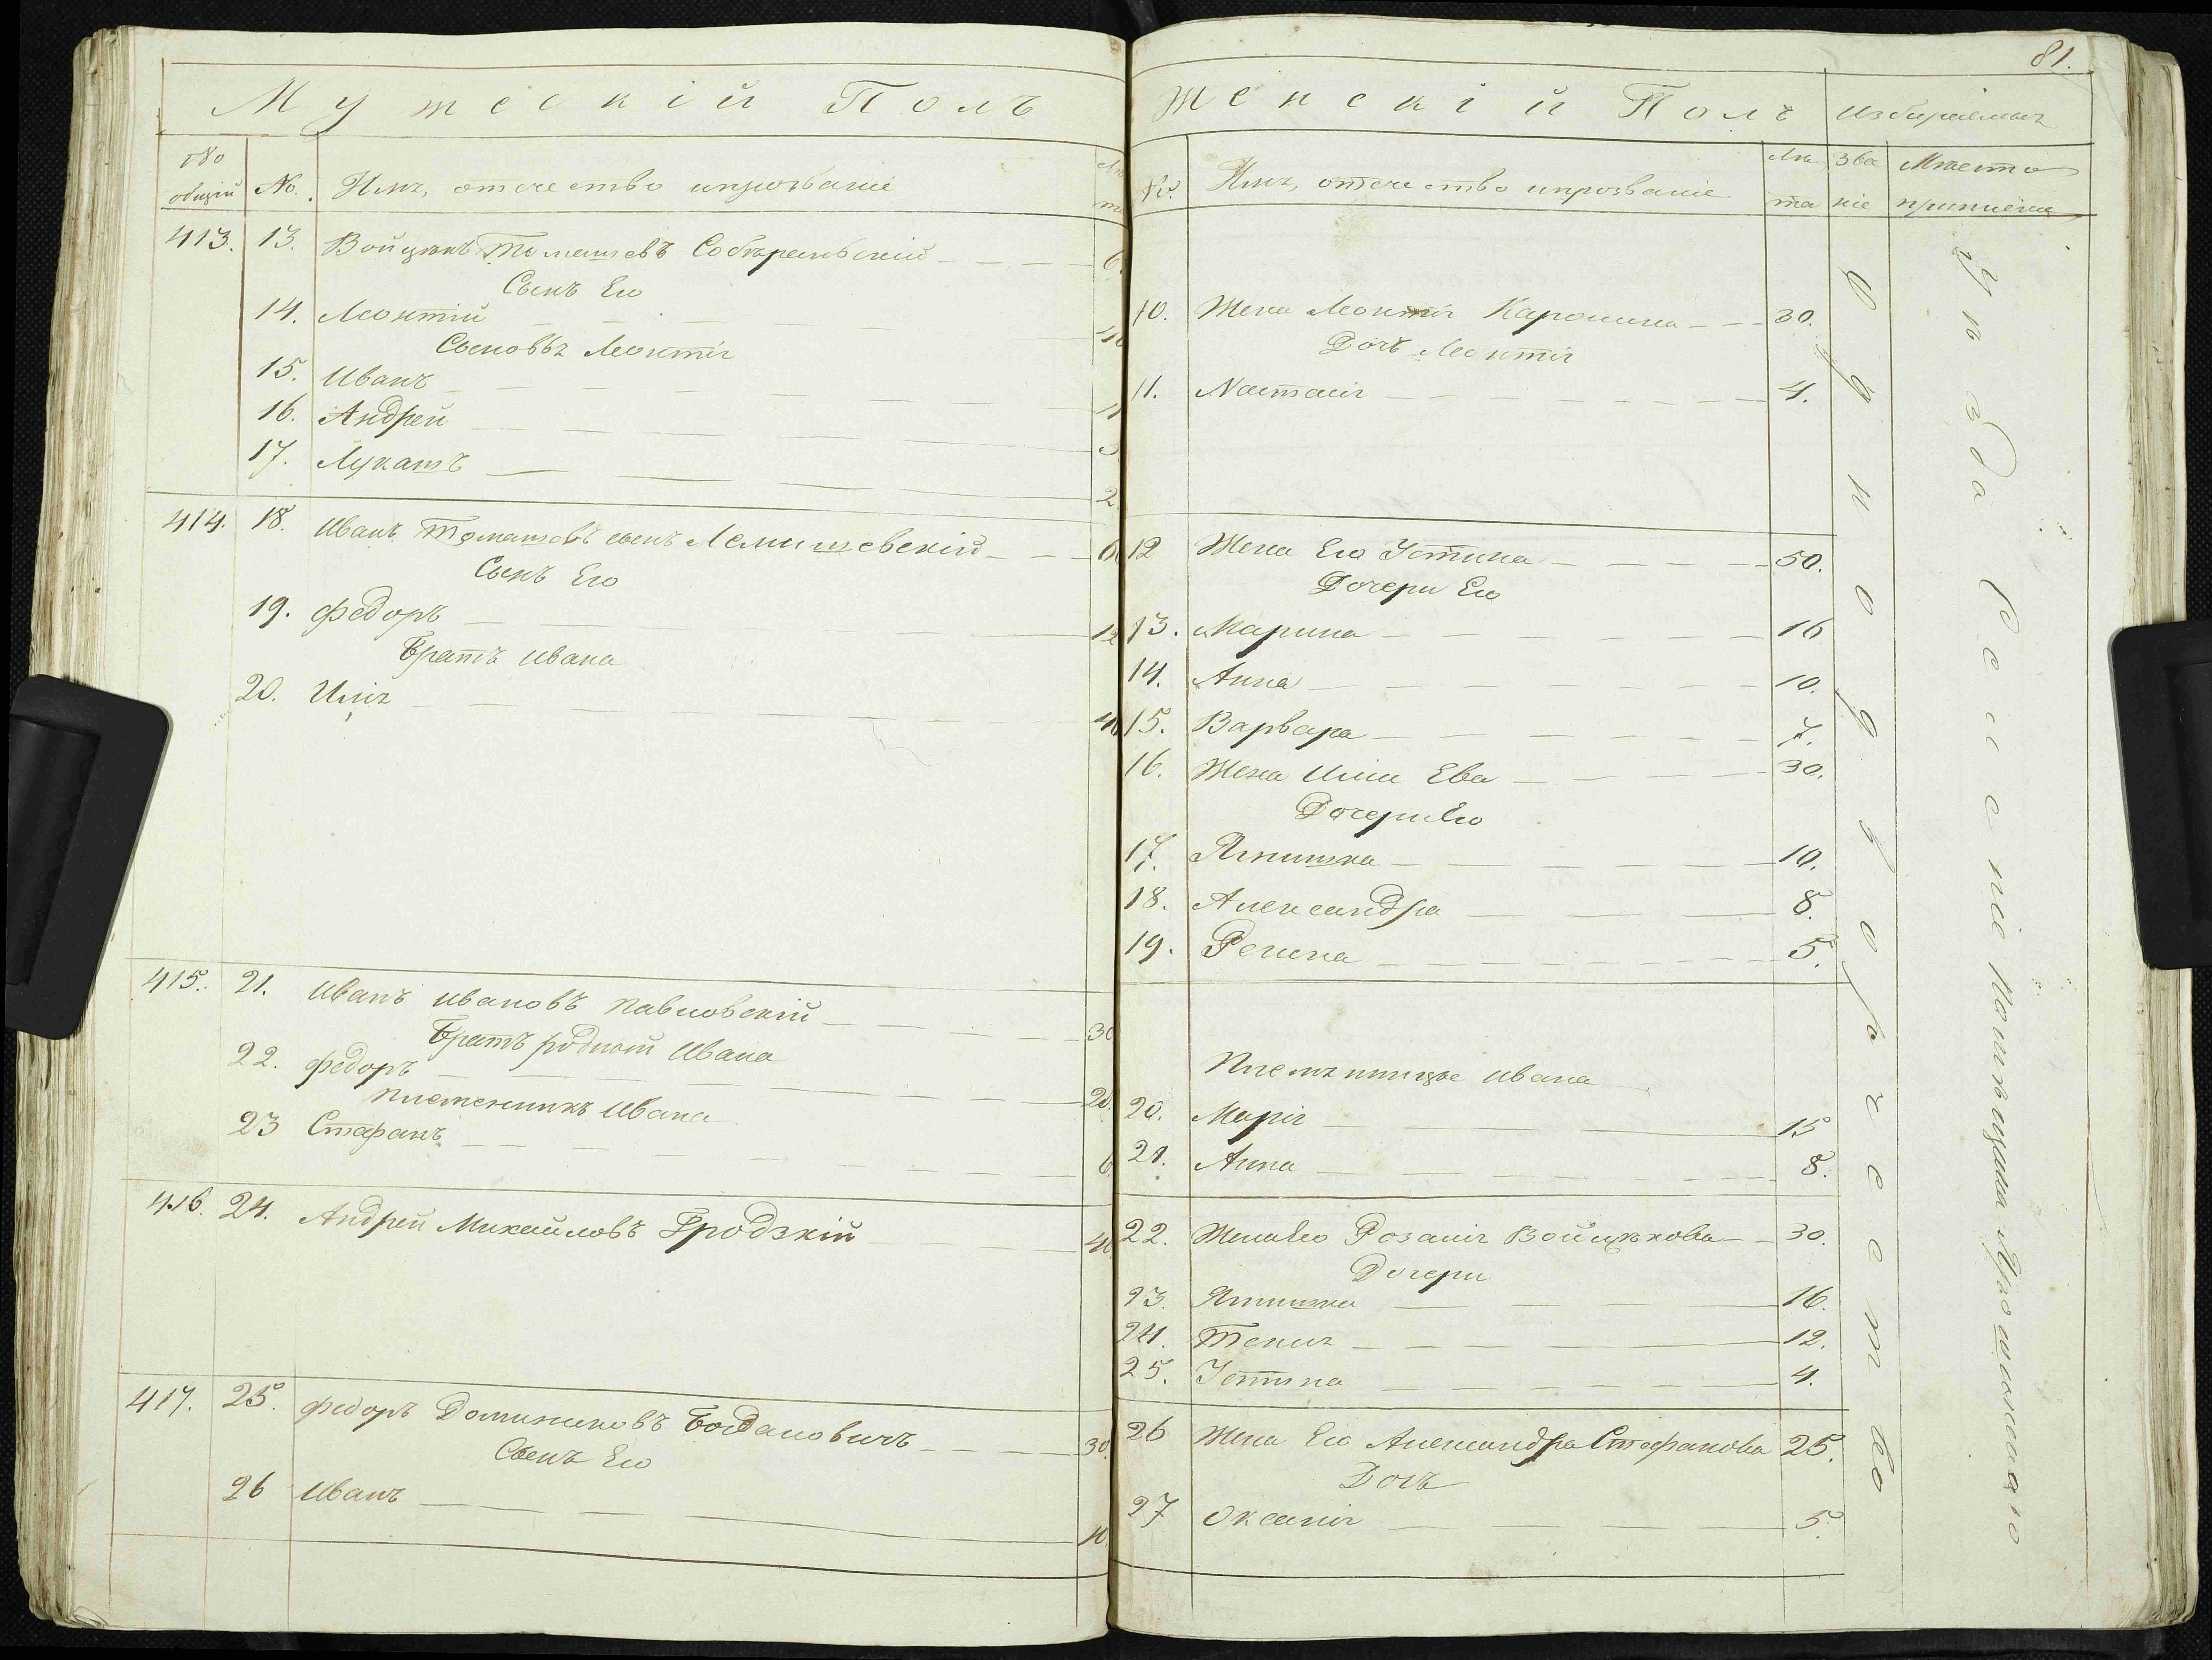 81.
Мужескій Полъ
№
общій
№.
Имя, отечество и прозваніе
413. 13. Войцѣхъ Томашовъ
Сынъ Его
14. Леонтій
Сыновья Леонтія
15. Иванъ 11
16. Андрей
17. Лукашъ 2
414. 18. Иванъ Томашовъ сынъ Лемишевскій
Сынъ Его
19. Федоръ 12
Братъ Ивана
20. Илія 40
415. 21. Иванъ Ивановъ Павловскій 30
Братъ родной Ивана
22. Федоръ 20.
Племенникъ Ивана
23 Стафанъ 6
416. 24. Андрей Михайловъ Гродзкій 40
417. 25. Федоръ Доминиковъ Богдановичъ 30
Сынъ Его
26 Иванъ 10.
Женскій Полъ
№.
Имя, отечество и прозваніе
Лѣ
та
10. Жена Леонтія Каролина 30.
Дочь Леонтія
11. Настасія 4.
12 Жена Его Устина 50.
Дочери Его
13. Марина 16
14. Анна 10.
15. Варвара 7.
16. Жена Иліи Ева 30.
Дочери Его
17. Ягнишка 10.
18. Александра 8.
19. Регина 5.
Племянницы Ивана
20. Марія 15
21. Анна 8.
22. Жена Его Розалія Войцѣхова 30.
Дочери
23. Ягнишка 16.
24. Текля 12.
25. Устина 4.
26 Жена Его Александра Стафанова 25.
Дочь
27 Оксанія 5.
Избираемыя
Зва
ніе
Мѣсто
приписки
Однодворчество
Уѣзда Селеніе Помѣщика